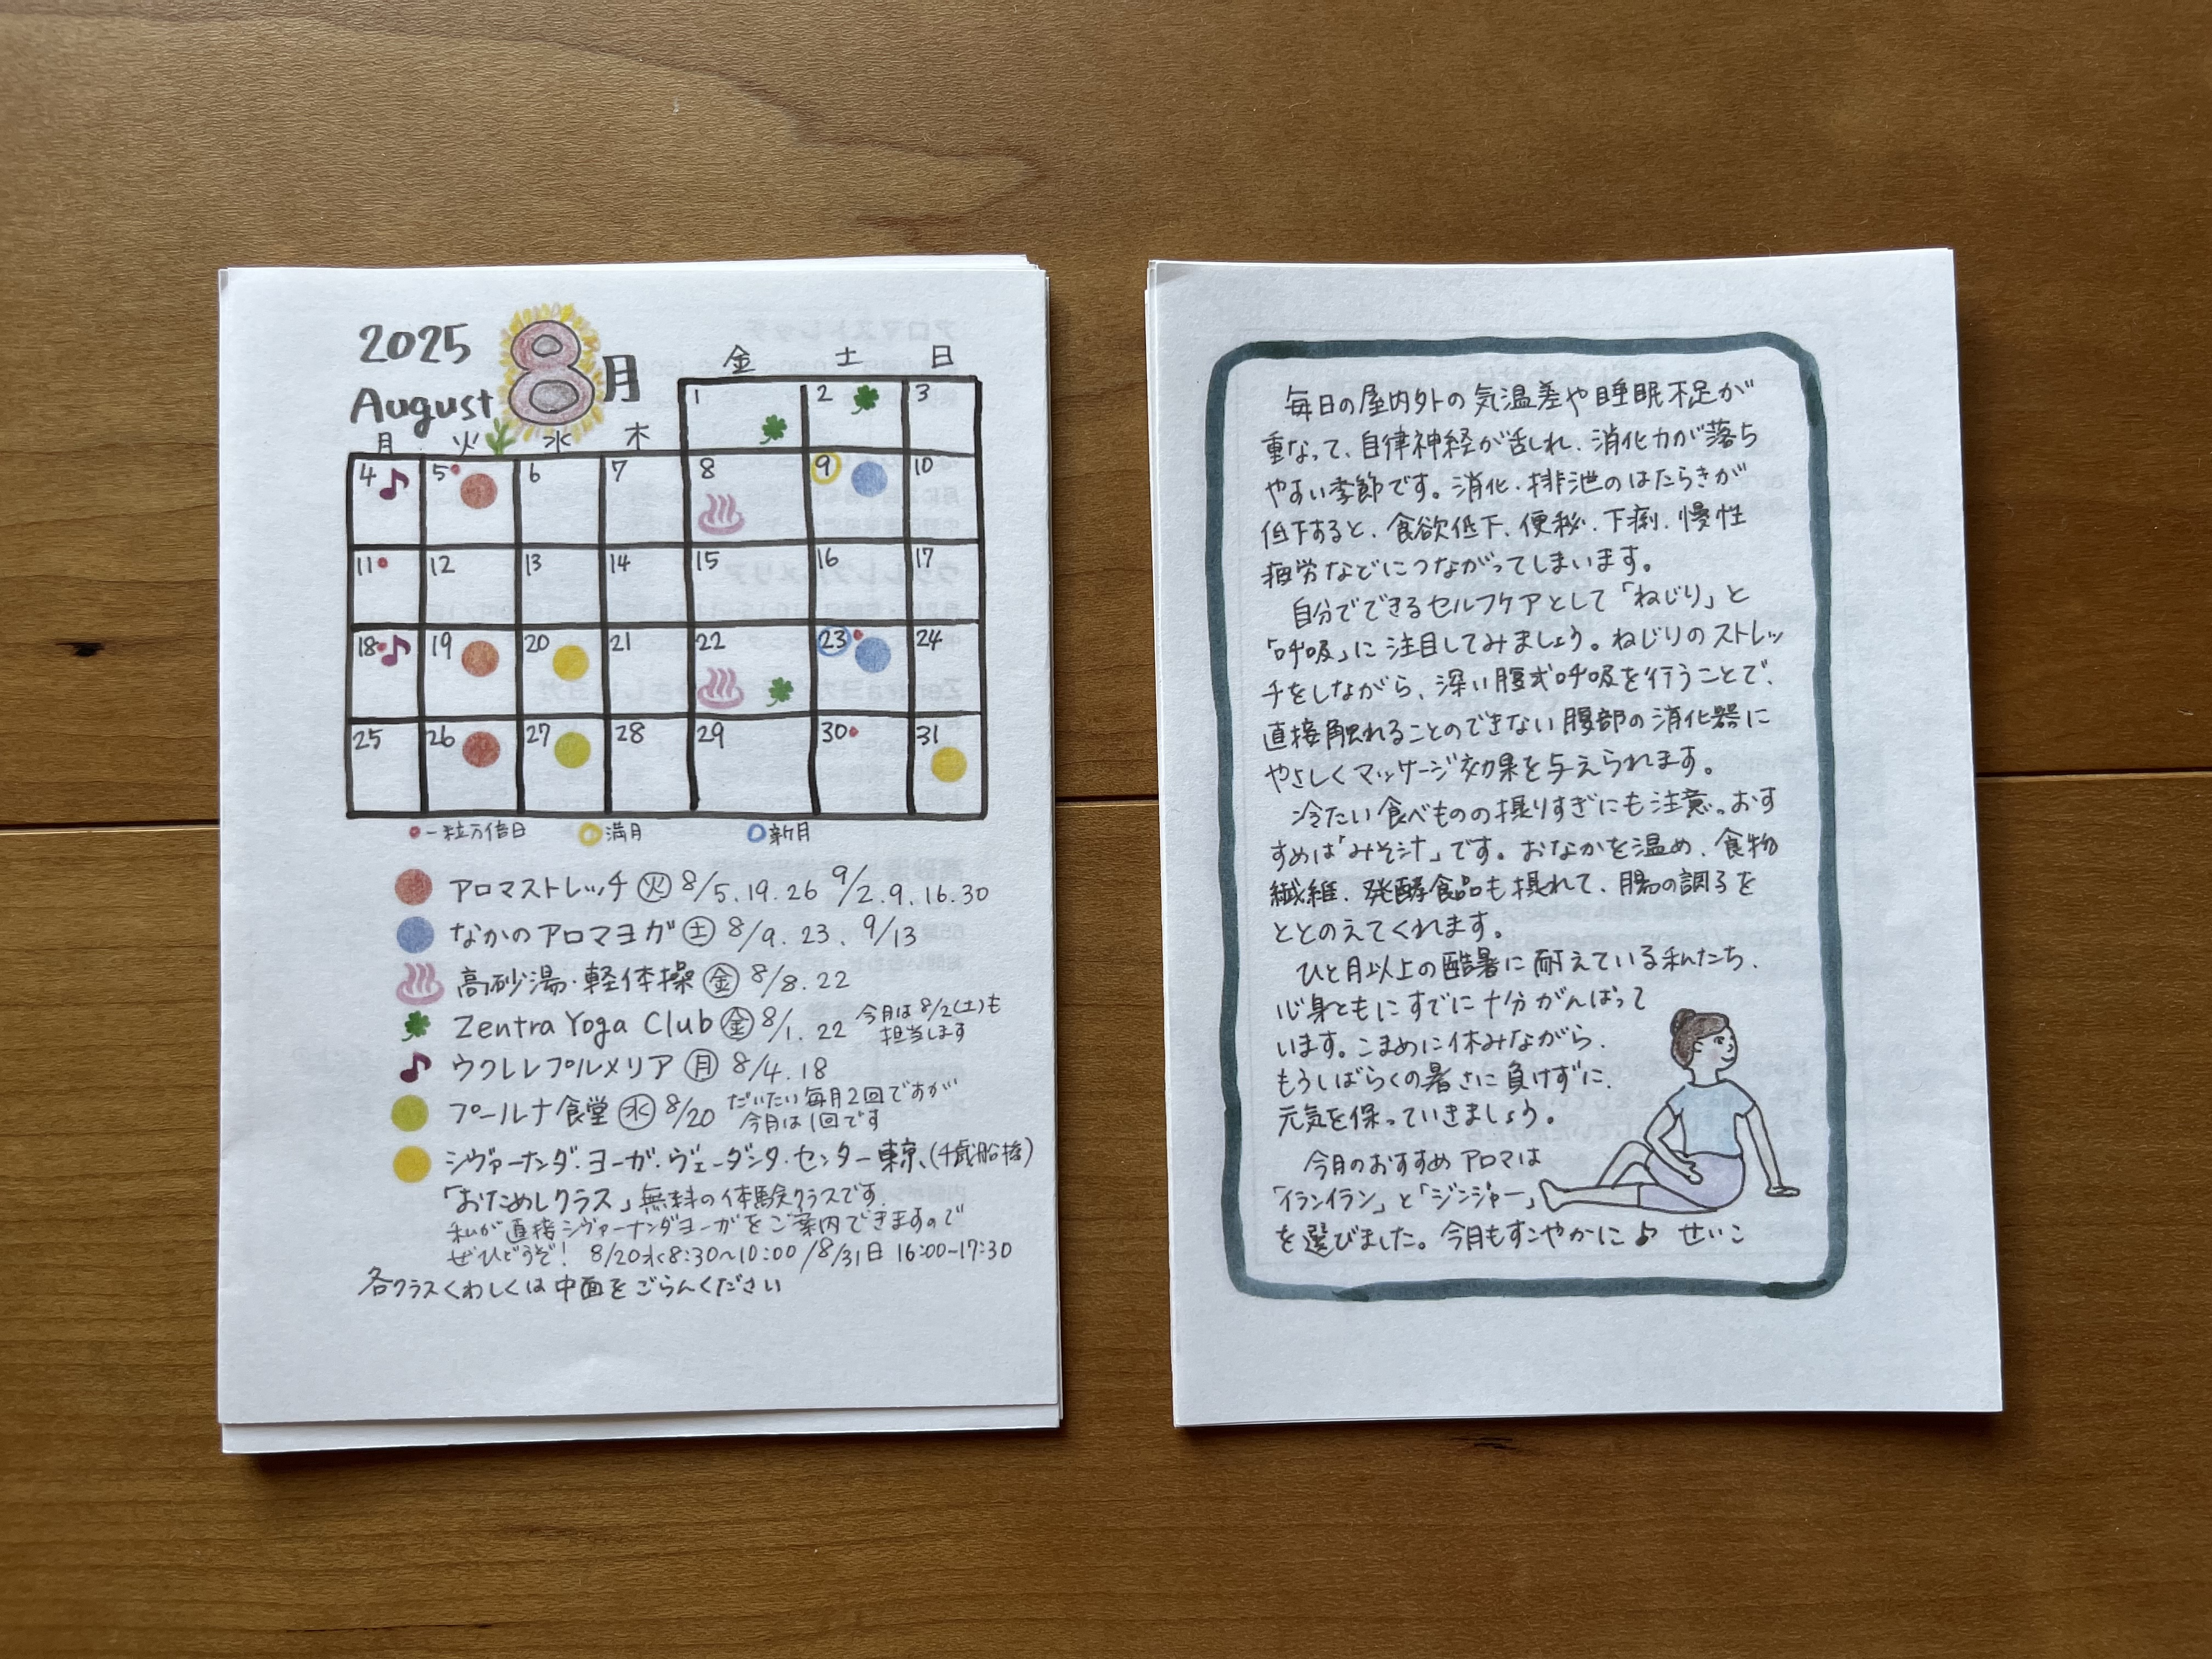 2025
August 8月
月 火 水 木 金 土 日
1 2 3
4 5 6 7 8 9 10
11 12 13 14 15 16 17
18 19 20 21 22 23 24
25 26 27 28 29 30 31
一粒万倍日 満月 新月
アロマストレッチ 火 8/5.19.26 9/2.9.16.30
なかのアロマヨガ 土 8/9.23. 9/13
高砂湯・軽体操 金 8/8.22
Zentra Yoga Club 金 8/1.22 今月は8/2(土)も
担当します
ウクレレプルメリア 月 8/4.18
プールナ食堂 水 8/20 だいたい毎月2回ですが
今月は1回です
シヴァーナンダ・ヨーガ・ヴェーダンタ・センター東京、(千歳船橋)
「おためしクラス」無料の体験クラスです。
私が直接シヴァーナンダヨーガをご案内できますので
ぜひどうぞ! 8/20水8:30~10:00/8/31日 16:00-17:30
各クラスくわしくは中面をごらんください
毎日の屋内外の気温差や睡眠不足が
重なって、自律神経が乱れ、消化力が落ち
やすい季節です。消化・排泄のはたらきが
低下すると、食欲低下、便秘、下痢、慢性
疲労などにつながってしまいます。
自分でできるセルフケアとして「ねじり」と
「呼吸」に注目してみましょう。ねじりのストレッ
チをしながら、深い腹式呼吸を行うことで、
直接触れることのできない腹部の消化器に
やさしくマッサージ効果を与えられます。
冷たい食べものの摂りすぎにも注意。おす
すめは「みそ汁」です。おなかを温め、食物
繊維、発酵食品も摂れて、腸の調子を
ととのえてくれます。
ひと月以上の酷暑に耐えている私たち、
心身ともにすでに十分がんばって
います。こまめに休みながら、
もうしばらくの暑さに負けずに、
元気を保っていきましょう。
今月のおすすめアロマは
「イランイラン」と「ジンジャー」
を選びました。今月もすこやかに♪ せいこ